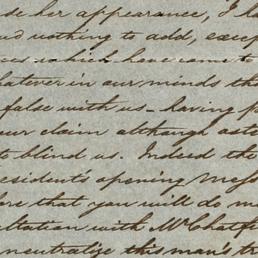 se her appearance, I
nothing to add, excep
which have come to
whatever in our minds tha
false with us - having p
our claim although aste
to blind us. Indeed the
resident's opening mess
ore that you will do me
ltation with Mr Chatfi
neutralize this man's tr